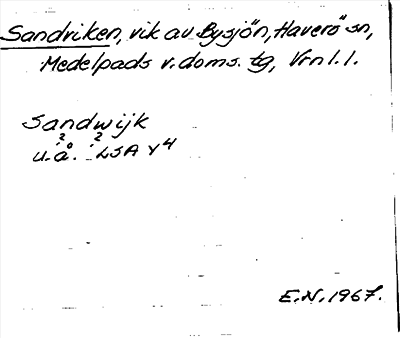 Sandviken, vik av Bysjön, Haverö sn,
Medelpads v. doms. tg, Vrn l. l.
Sandwijk
u. å. LSA Y4
E.N. 1967.